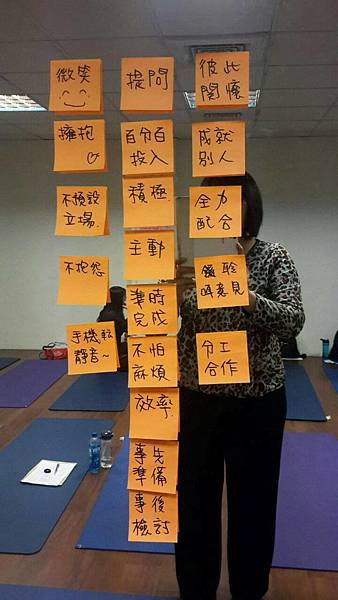 微笑
擁抱
不預設
立場
不抱怨
手機転
靜音~
提問
百分百
投入
積極
主動
準時
完成
不怕
麻煩
效率
事先
準備
事後
檢討
彼此
関懷
成就
別人
全力
配合
意見
分工
合作